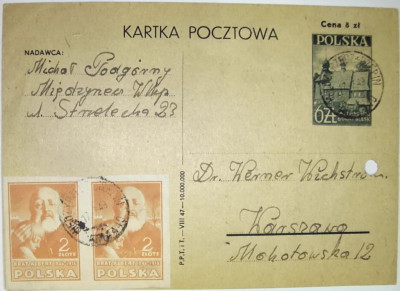 Cena 8 zł
KARTKA POCZTOWA
POLSKA
6 ZŁ
NADAWCA:
Michał Podgórny
Międzyrzecz Wlkp
ul. Strzelecka 23
Dr. Werner
Warszawa
Mokotowska 12
P.P.T. i T. - VIII 47 - 10.000.000
2
ZŁOTE
POLSKA
2
ZŁOTE
POLSKA